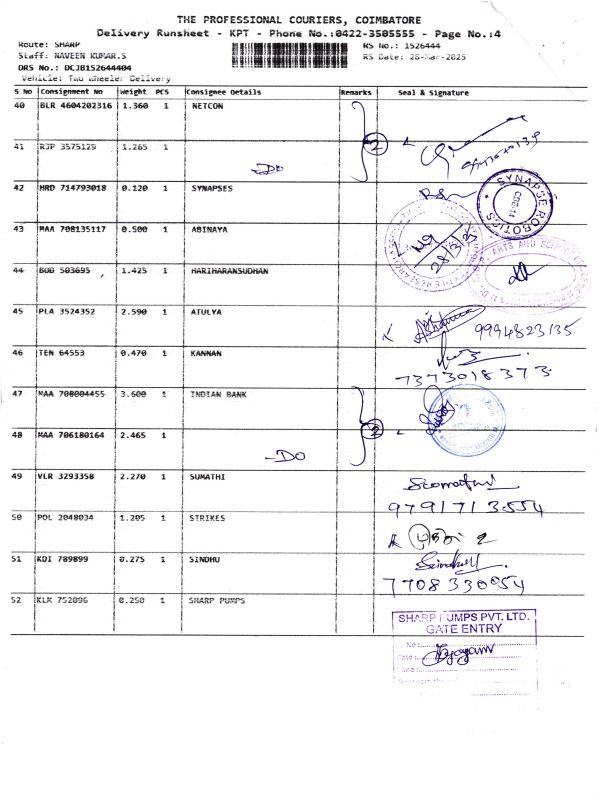 THE PROFESSIONAL COURIERS, COIMBATORE
Delivery Runsheet - KPT - Phone No.:0422-3505555 - Page No.:4
Route: SHARP RS No.: 1526444
Staff: NAVEEN KUMAR.S RS Date: 28-Mar-2025
DRS No.: DCJB152644404
Vehicle: Two Wheeler Delivery
S No Consignment No Weight PCS Consignee Details Remarks Seal & Signature
40 BLR 4604202316 1.360 1 NETCON
2
41 RJP 3575129 1.265 1
-DO
42 HRD 714793018 0.120 1 SYNAPSES
SYNAPSE ROBOTICS
43 MAA 708135117 0.500 1 ABINAYA
28/3/25
ARTS AND
44 BOD 503695 1.425 1 HARIHARANSUDHAN
45 PLA 3524352 2.590 1 ATULYA
9994823135
46 TEN 64553 0.470 1 KANNAN
7373018373
47 MAA 708004455 3.600 1 INDIAN BANK
2
48 MAA 706180164 2.465 1
-DO
49 VLR 3293358 2.270 1 SUMATHI
9791713554
50 POL 2048034 1.205 1 STRIKES
51 KDI 789899 0.275 1 SINDHU
7708330054
52 KLK 752096 0.250 1 SHARP PUMPS
SHARP PUMPS PVT. LTD.
GATE ENTRY
No :
Date :